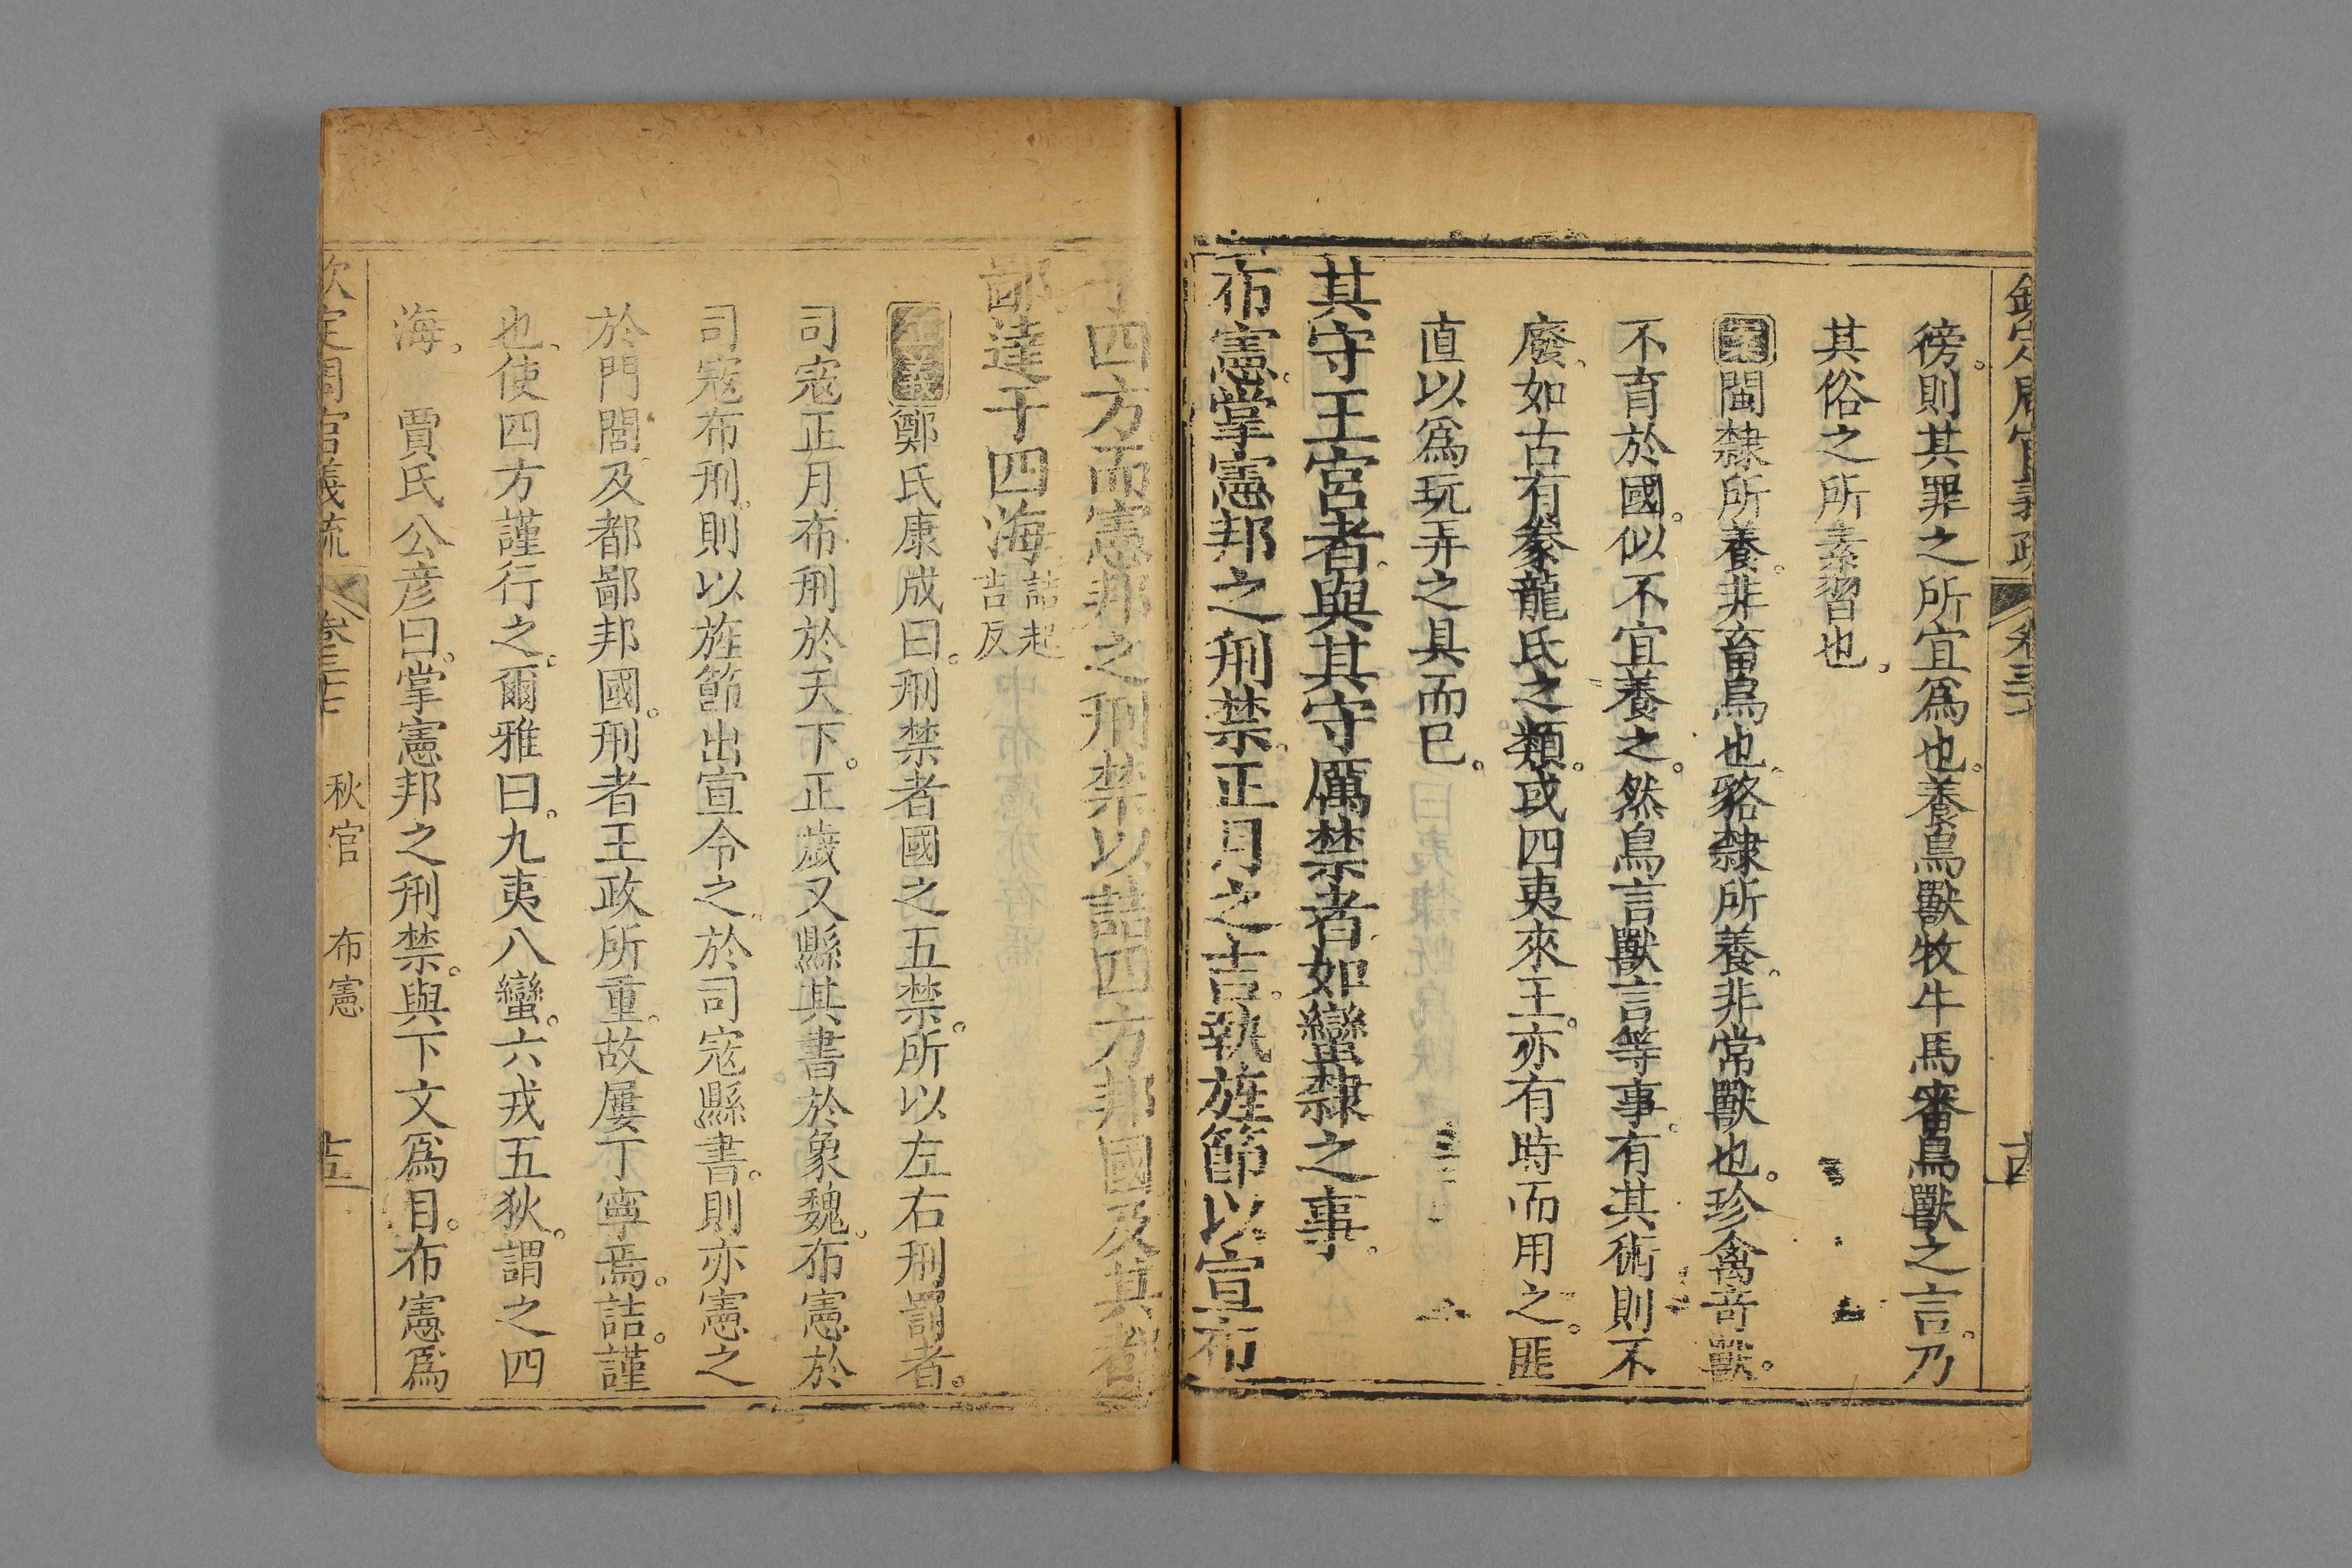 欽定周官義疏 卷三十七 十四
徬。則其罪之所宜爲也。養鳥獸牧牛馬審鳥獸之言。乃
其俗之所素習也。
案閩隸所養。非畜鳥也。貉隸所養。非常獸也。珍禽奇獸。
不育於國。似不宜養之。然鳥言獸言等事。有其術則不
廢。如古有豢龍氏之類。或四夷來王。亦有時而用之。匪
直以爲玩弄之具而已。
其守王宮者。與其守厲禁者如蠻隸之事。
布憲。掌憲邦之刑禁。正月之吉。執旌節以宣布
于四方而憲邦之刑禁以詰四方邦國及其都
鄙達于四海詰起吉反
鄭氏康成曰。刑禁者國之五禁。所以左右刑罰者。
司寇正月布刑於天下。正歲又縣其書於象魏。布憲於
司寇布刑。則以旌節出宣令之。於司寇縣書。則亦憲之
於門閭。及都鄙邦國。刑者王政所重。故屢丁寧焉。詰。謹
也、使四方謹行之。爾雅曰。九夷八蠻。六戎五狄。謂之四
海。 賈氏公彦曰。掌憲邦之刑禁。與下文爲目。布憲爲
欽定周官義疏 卷三十七 秋官 布憲 十五